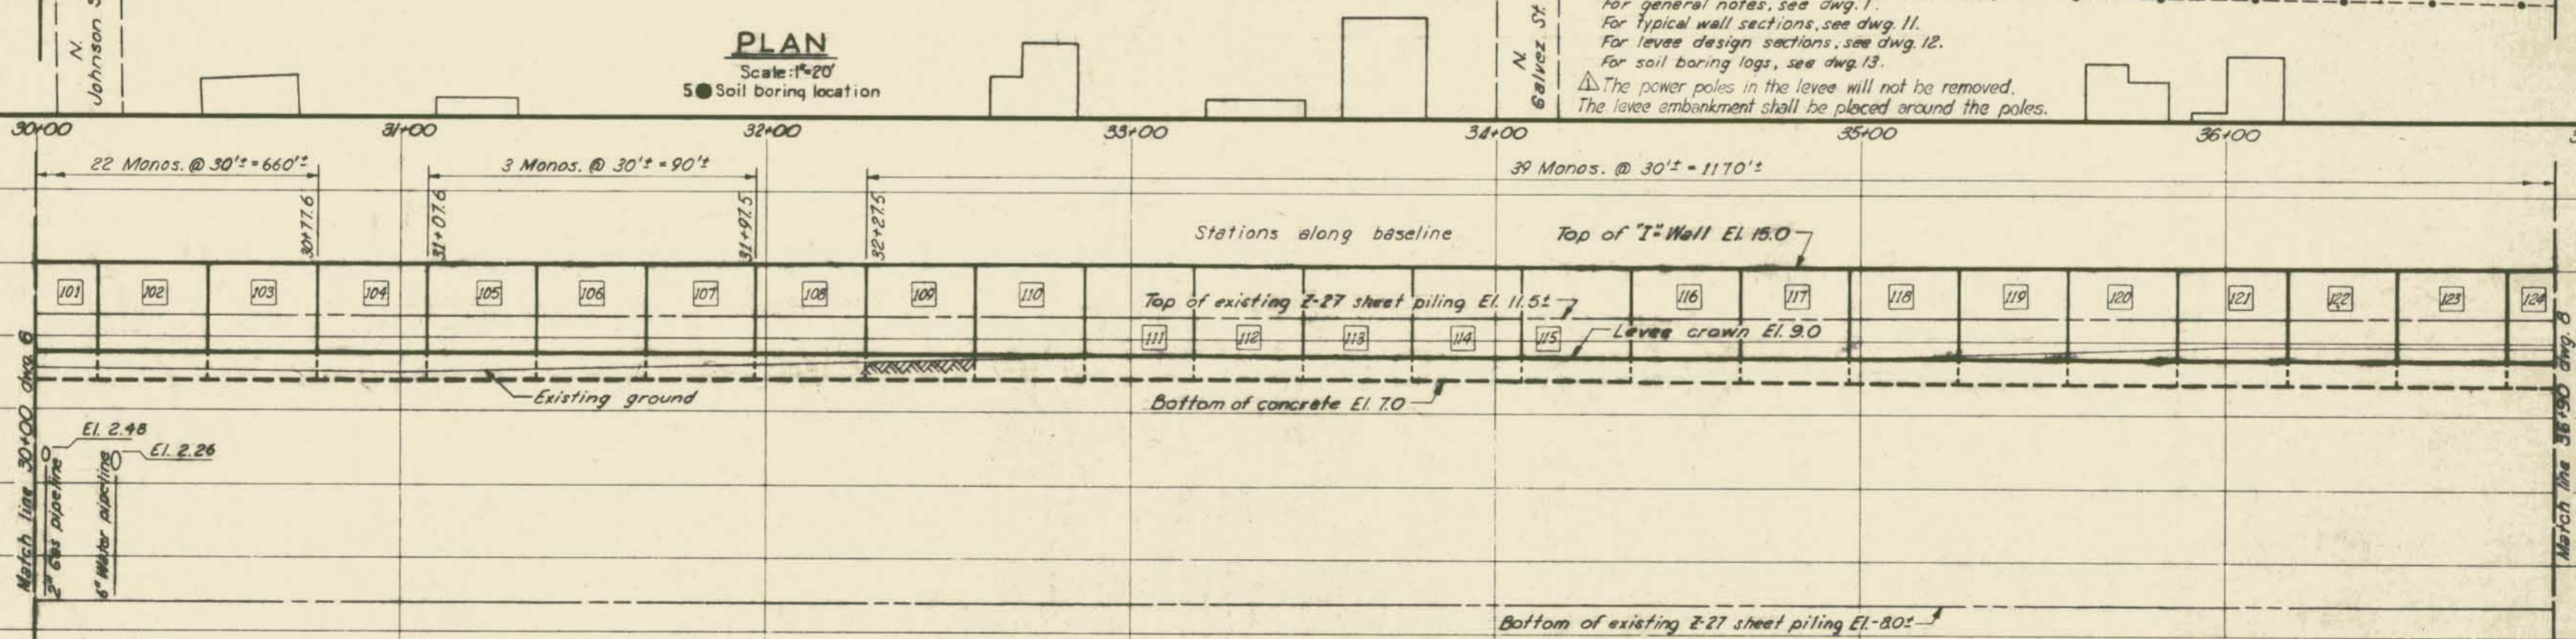 N.
Johnson S
PLAN
Scale: 1"=20'
5 Soil boring location
N.
Galvez St.
For general notes, see dwg. 1.
For typical wall sections, see dwg. 11.
For levee design sections, see dwg. 12.
For soil boring logs, see dwg. 13.
1 The power poles in the levee will not be removed.
The levee embankment shall be placed around the poles.
30+00
31+00
32+00
33+00
34+00
35+00
36+00
22 Monos. @ 30'± = 660'±
3 Monos. @ 30'± = 90'±
39 Monos. @ 30'± = 1170'±
30+77.6
31+07.6
31+97.5
32+27.5
Stations along baseline
Top of "I"-Wall El. 15.0
101
102
103
104
105
106
107
108
109
110
Top of existing Z-27 sheet piling El. 11.5±
116
117
118
119
120
121
122
123
124
111
112
113
114
115
Levee crown El. 9.0
Existing ground
Bottom of concrete El. 7.0
El. 2.48
El. 2.26
Match line 30+00 dwg. 6
2" Gas pipeline
6" Water pipeline
Match line 36+90 dwg. 8
Bottom of existing Z-27 sheet piling El.-8.0±